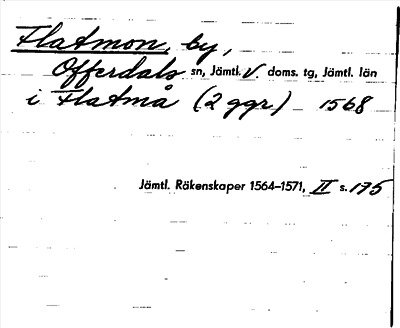 Flatmon, by,
Offerdals sn, Jämtl. V. doms. tg, Jämtl. län
i Flatmå (2 ggr) 1568
Jämtl. Räkenskaper 1564–1571, II s. 175